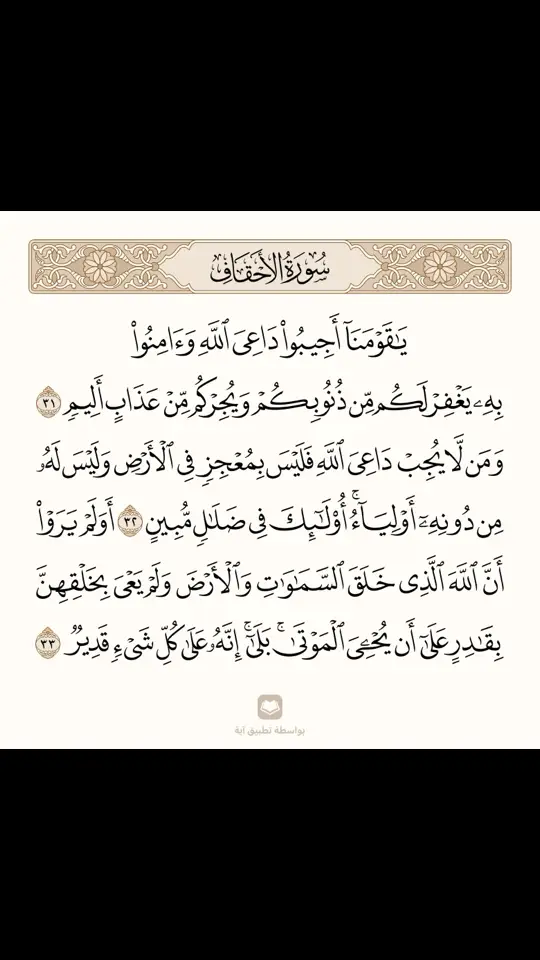 سُورَةُ الأَحْقَافِ
يَٰقَوْمَنَآ أَجِيبُوا۟ دَاعِىَ ٱللَّهِ وَءَامِنُوا۟
بِهِۦ يَغْفِرْ لَكُم مِّن ذُنُوبِكُمْ وَيُجِرْكُم مِّنْ عَذَابٍ أَلِيمٍ ٣١
وَمَن لَّا يُجِبْ دَاعِىَ ٱللَّهِ فَلَيْسَ بِمُعْجِزٍ فِى ٱلْأَرْضِ وَلَيْسَ لَهُۥ
مِن دُونِهِۦٓ أَوْلِيَآءُ ۚ أُو۟لَٰٓئِكَ فِى ضَلَٰلٍ مُّبِينٍ ٣٢ أَوَلَمْ يَرَوْا۟
أَنَّ ٱللَّهَ ٱلَّذِى خَلَقَ ٱلسَّمَٰوَٰتِ وَٱلْأَرْضَ وَلَمْ يَعْىَ بِخَلْقِهِنَّ
بِقَٰدِرٍ عَلَىٰٓ أَن يُحْـِۧىَ ٱلْمَوْتَىٰ ۚ بَلَىٰٓ ۚ إِنَّهُۥ عَلَىٰ كُلِّ شَىْءٍ قَدِيرٌ ٣٣
بواسطة تطبيق آية